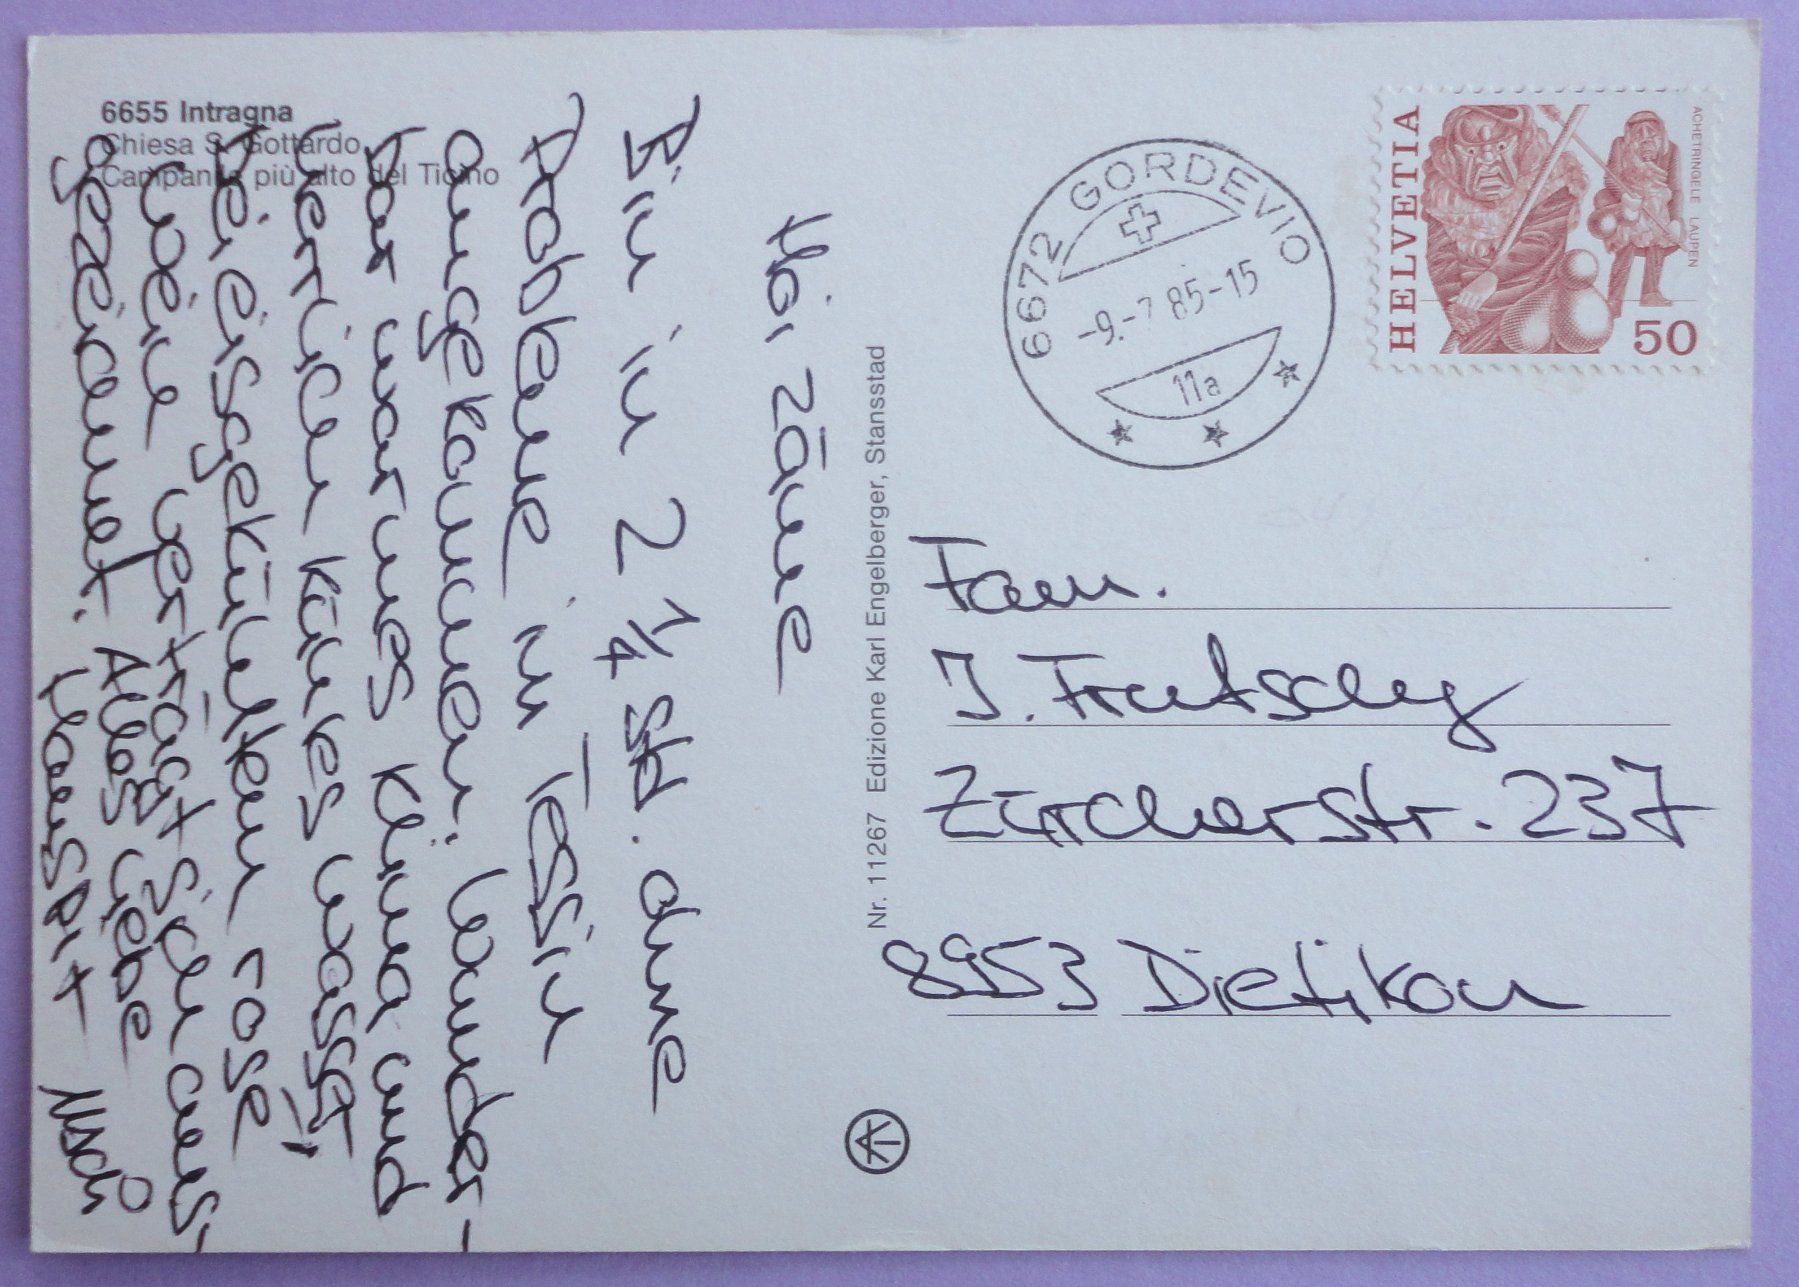 6655 Intragna
Chiesa S. Gottardo
Campanile più alto del Ticino
Hoi zäme
Bin in 2 1/4 Std. ohne
Probleme in Tessin
angekommen. Wunder-
bar warmes Klima und
herrlich kühles Wasser,
bei eisgekühltem rose
wein verträgt sich aus-
gezeichnet. Alles Liebe
Hanspit
Nr. 11267 Edizione Karl Engelberger, Stansstad
6672 GORDEVIO
-9.-7 85-15
11a
HELVETIA
ACHETRINGELE LAUPEN
50
Fam.
J. Frutschy
Zürcherstr. 237
8953 Dietikon